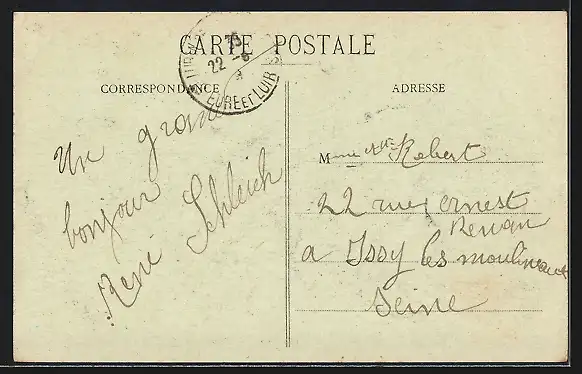 CARTE POSTALE
CORRESPONDANCE
ADRESSE
22 -8
EURE ET LOIR
Un grand
bonjour
René Schleich
Mme Vve Robert
22 rue ernest
Renan
a Issy les moulineaux
Seine